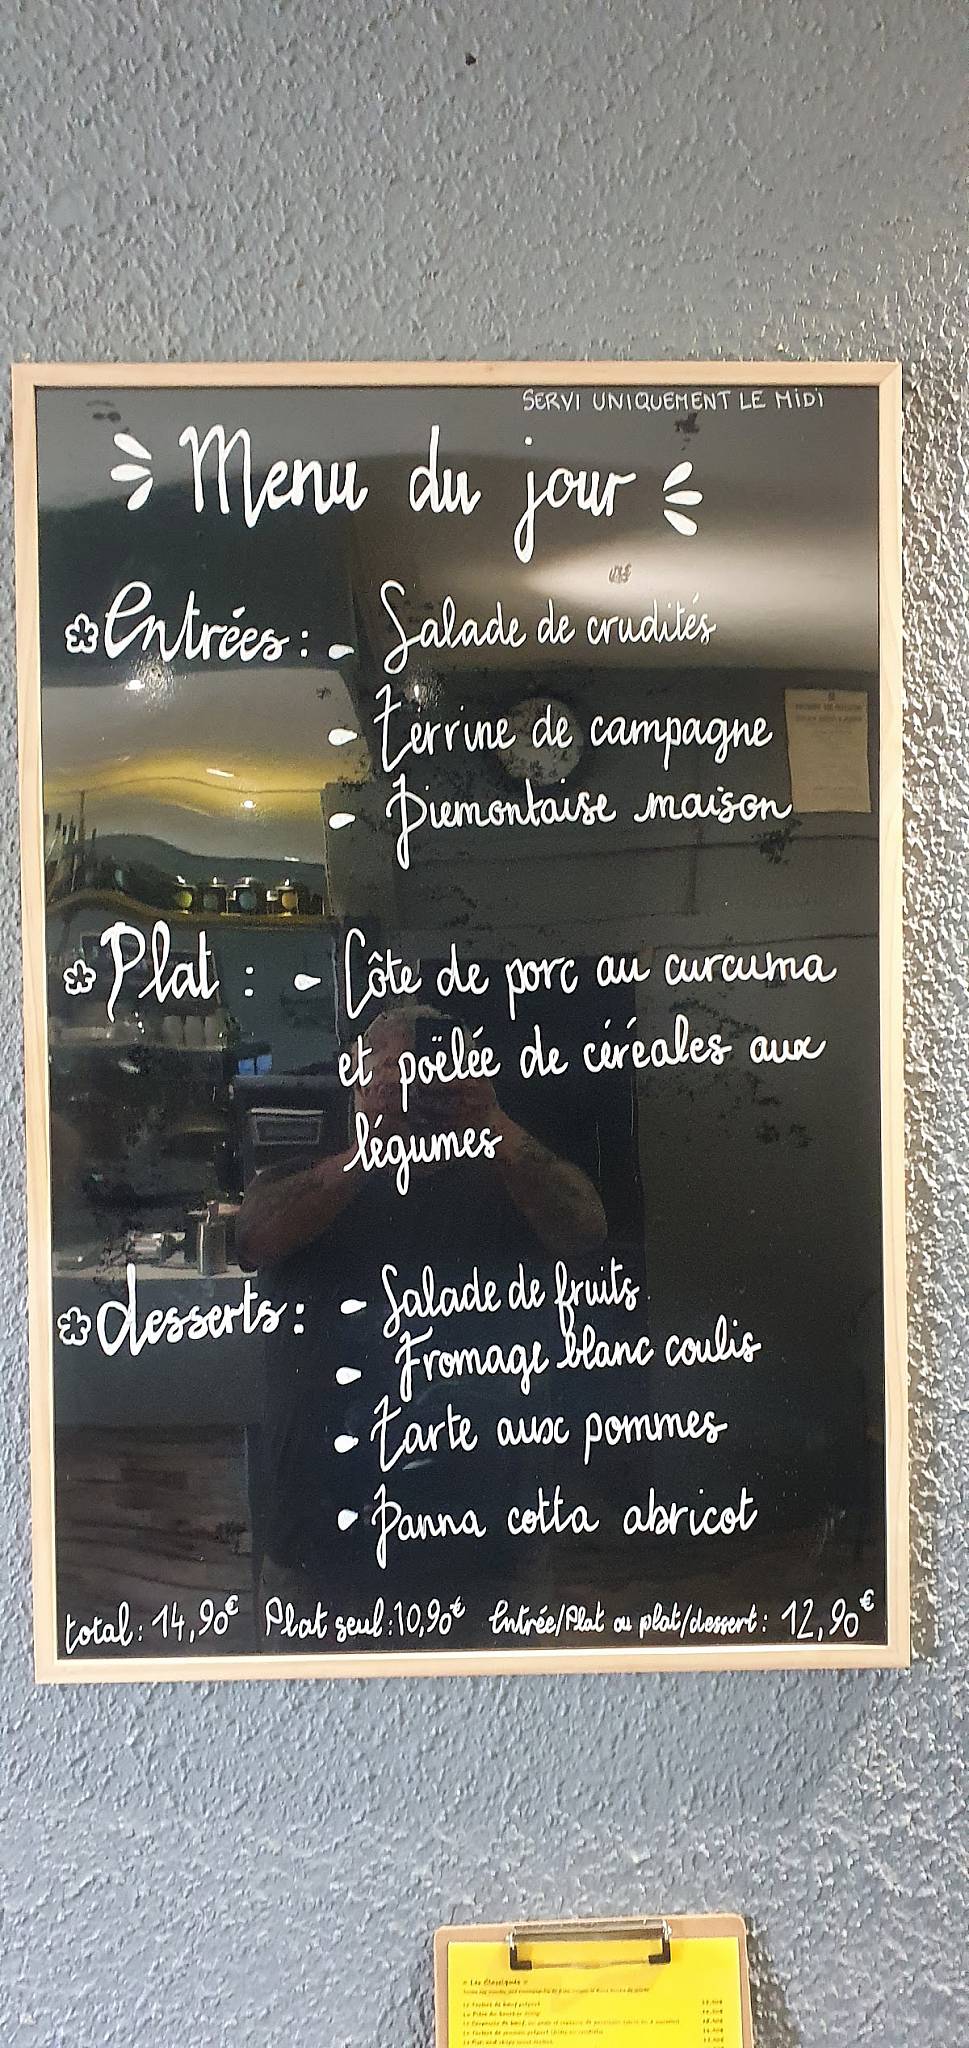 SERVI UNIQUEMENT LE MIDI
Menu du jour
Entrées : - Salade de crudités
- Terrine de campagne
- Piemontaise maison
Plat : - Côte de porc au curcuma
et poëlée de céréales aux
légumes
desserts : - Salade de fruits
- Fromage blanc coulis
- Tarte aux pommes
- Panna cotta abricot
total : 14,90€ Plat seul : 10,90€ Entrée/Plat ou plat/dessert : 12,90€